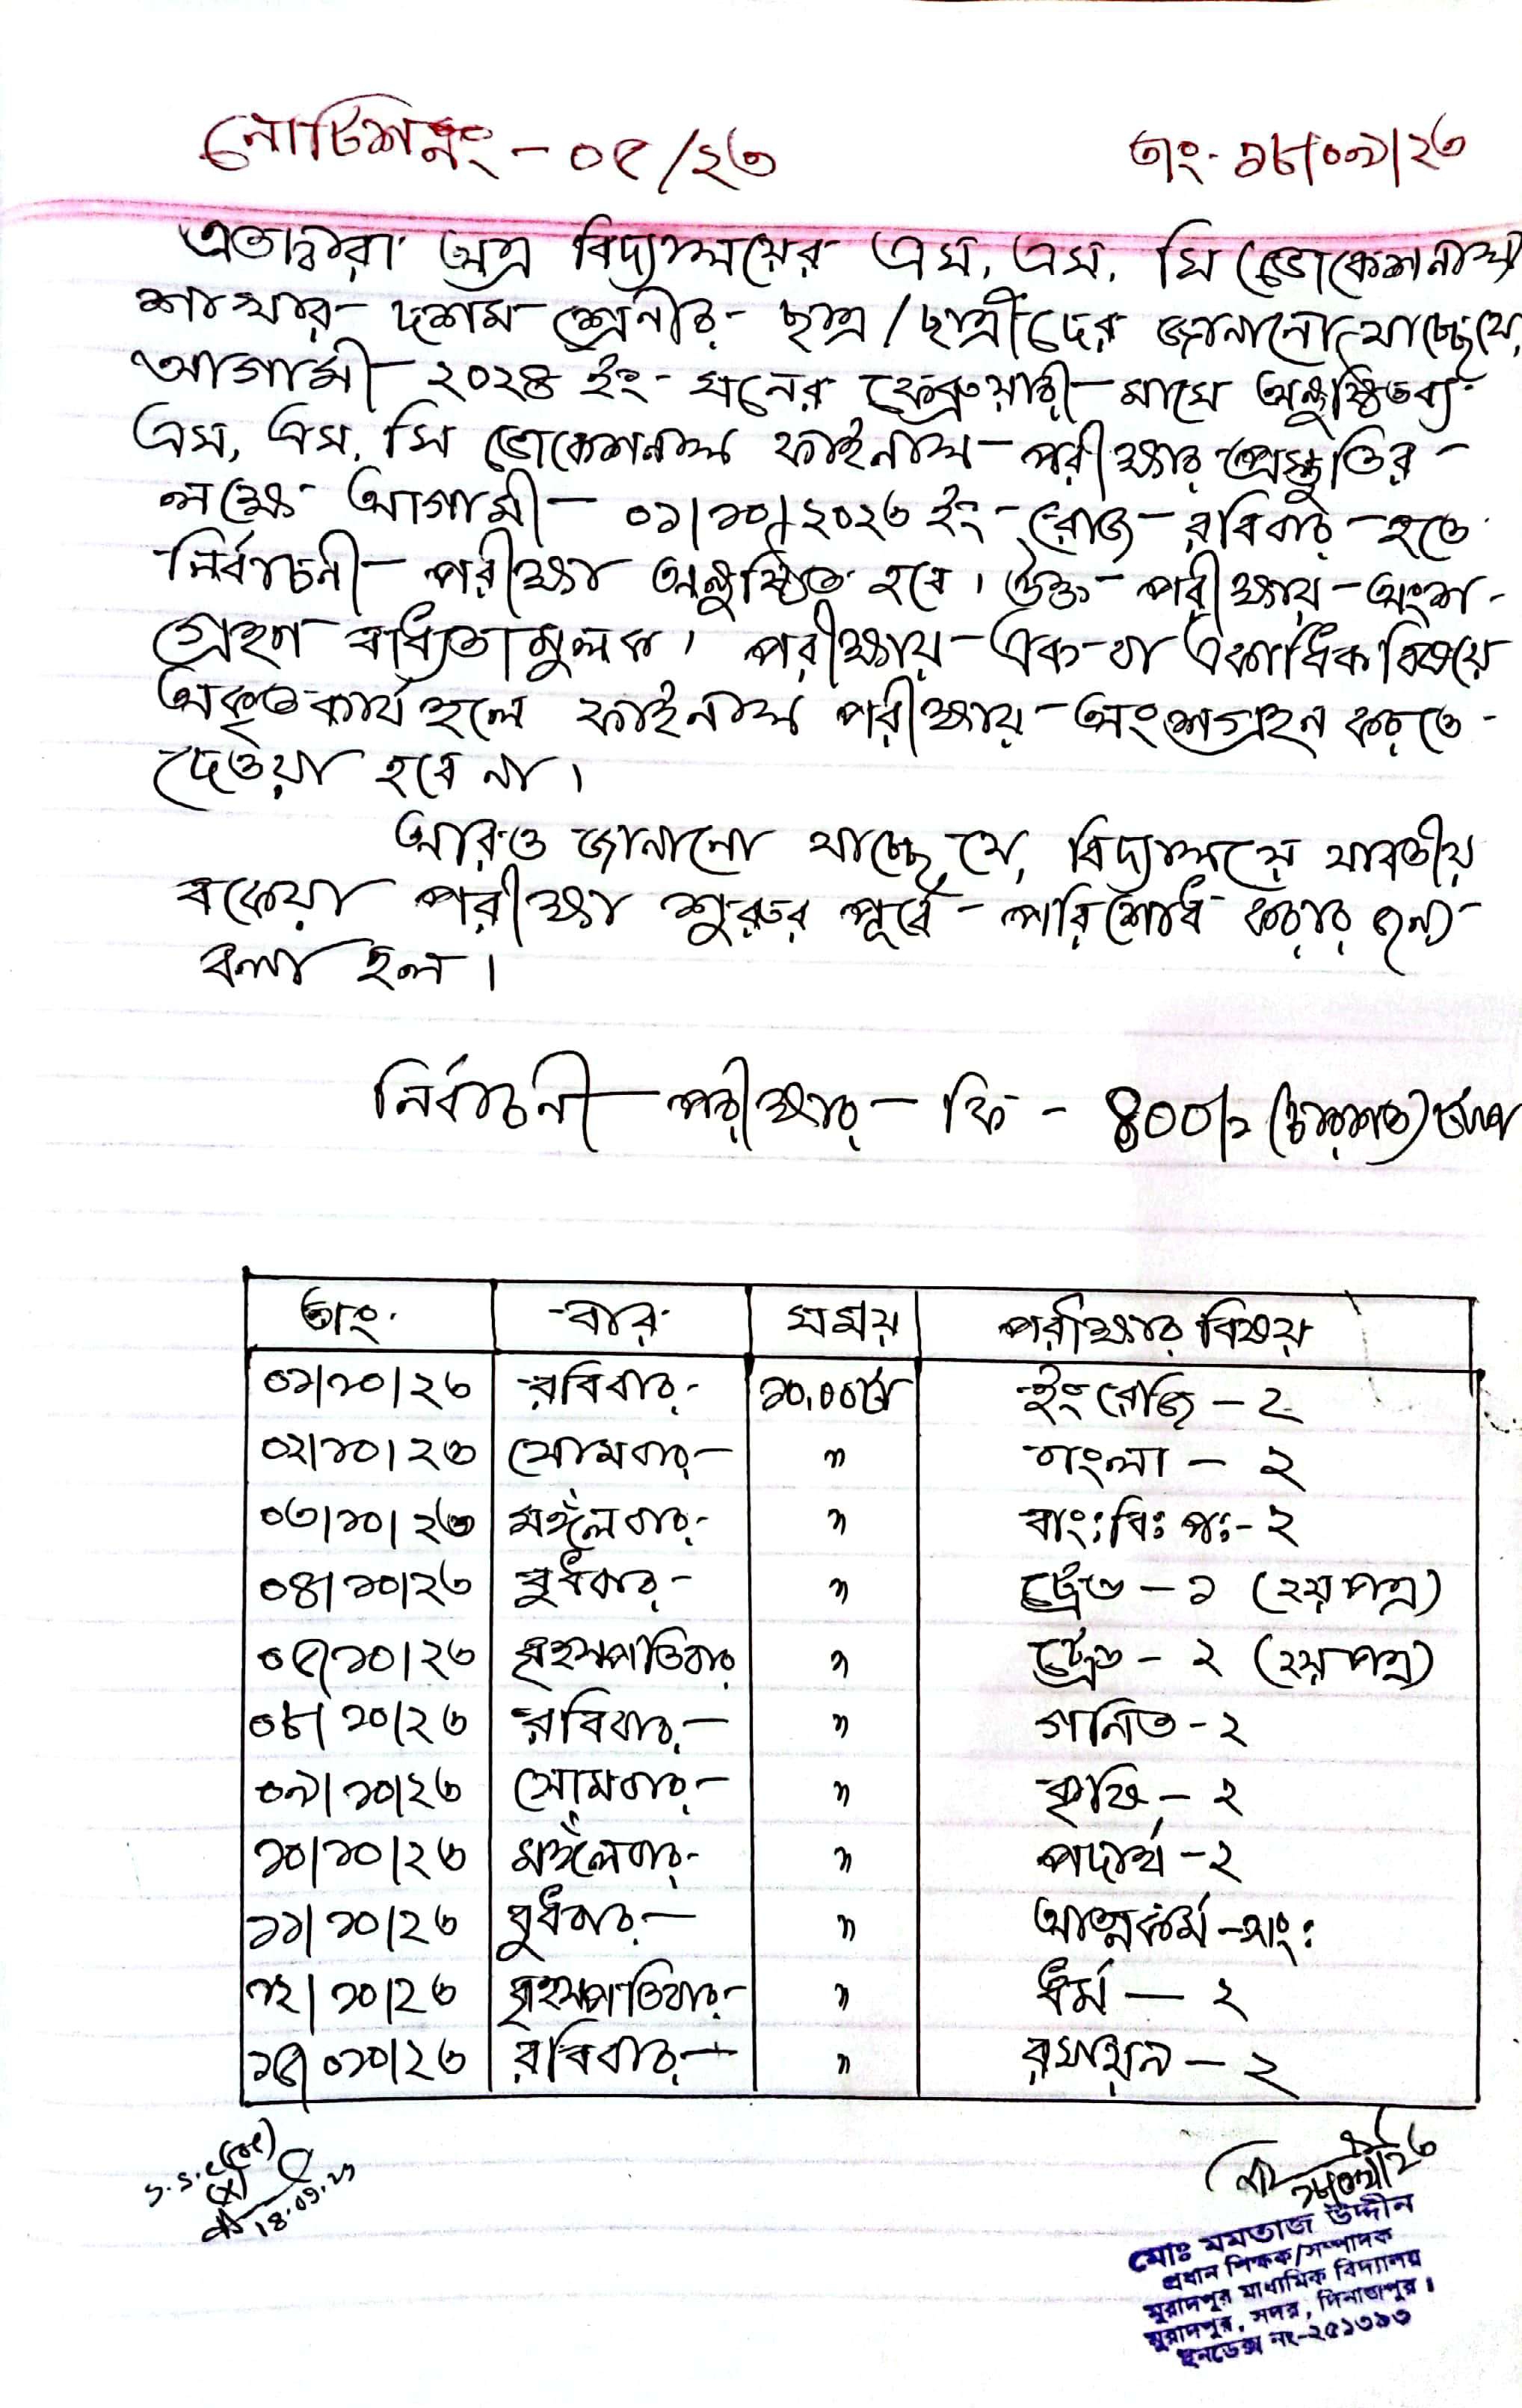 নোটিশ নং - ০৫/২৩ তাং- ১৮/০৯/২৩
এতদ্বারা অত্র বিদ্যালয়ের এস, এস, সি ভোকেশনাল
শাখার দশম শ্রেনীর ছাত্র/ছাত্রীদের জানানো যাচ্ছে যে,
আগামী ২০২৪ ইং সনের ফেব্রুয়ারী মাসে অনুষ্ঠিতব্য
এস, এস, সি ভোকেশনাল ফাইনাল পরীক্ষার প্রস্তুতির
লক্ষে আগামী ০১/১০/২০২৩ ইং রোজ রবিবার হতে
নির্বাচনী পরীক্ষা অনুষ্ঠিত হবে। উক্ত পরীক্ষায় অংশ
গ্রহণ বাধ্যিতামুলক। পরীক্ষায় এক বা একাধিক বিষয়ে
অকৃতকার্য হলে ফাইনাল পরীক্ষায় অংশগ্রহন করতে
দেওয়া হবে না।
আরও জানানো যাচ্ছে যে, বিদ্যালয়ে যাবতীয়
বকেয়া পরীক্ষা শুরুর পূর্বে পরিশোধ করার জন্য
বলা হল।
নির্বাচনী পরীক্ষার ফি - ৪০০/= (চারশত) টাকা
তাং বার সময় পরীক্ষার বিষয়
০১/১০/২৩ রবিবার ১০.০০টা ইংরেজি - ২
০২/১০/২৩ সোমবার " বাংলা - ২
০৩/১০/২৩ মঙ্গলবার " বাং: বি: প:- ২
০৪/১০/২৩ বুধবার " ট্রেড - ১ (২য় পত্র)
০৫/১০/২৩ বৃহসপতিবার " ট্রেড - ২ (২য় পত্র)
০৮/১০/২৩ রবিবার " গনিত - ২
০৯/১০/২৩ সোমবার " কৃষি - ২
১০/১০/২৩ মঙ্গলবার " পদার্থ - ২
১১/১০/২৩ বুধবার " আত্মকর্ম -সং:
১২/১০/২৩ বৃহসপতিবার " ধর্ম - ২
১৫/০১০/২৩ রবিবার " রসায়ন - ২
18.09.23
মোঃ মমতাজ উদ্দীন
প্রধান শিক্ষক/সম্পাদক
মুরাদপুর মাধ্যমিক বিদ্যালয়
মুরাদপুর, সদর, দিনাজপুর।
ইনডেক্স নং-২৫১৩৯৩